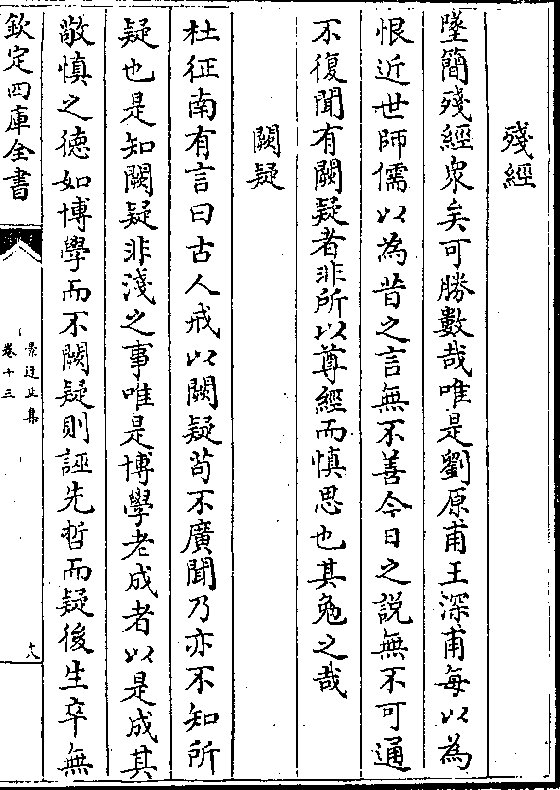 殘經
墜簡殘經衆矣可勝數哉唯是劉原甫王深甫每以為
恨近世師儒以為昔之言無不善今日之說無不可通
不復聞有闕疑者非所以尊經而慎思也其勉之哉
闕疑
杜征南有言曰古人戒以闕疑茍不廣聞乃亦不知所
疑也是知闕疑非淺之事唯是博學老成者以是成其
敬慎之德如博學而不闕疑則誣先哲而疑後生卒無
欽定四庫全書
景迂生集
卷十三
十八